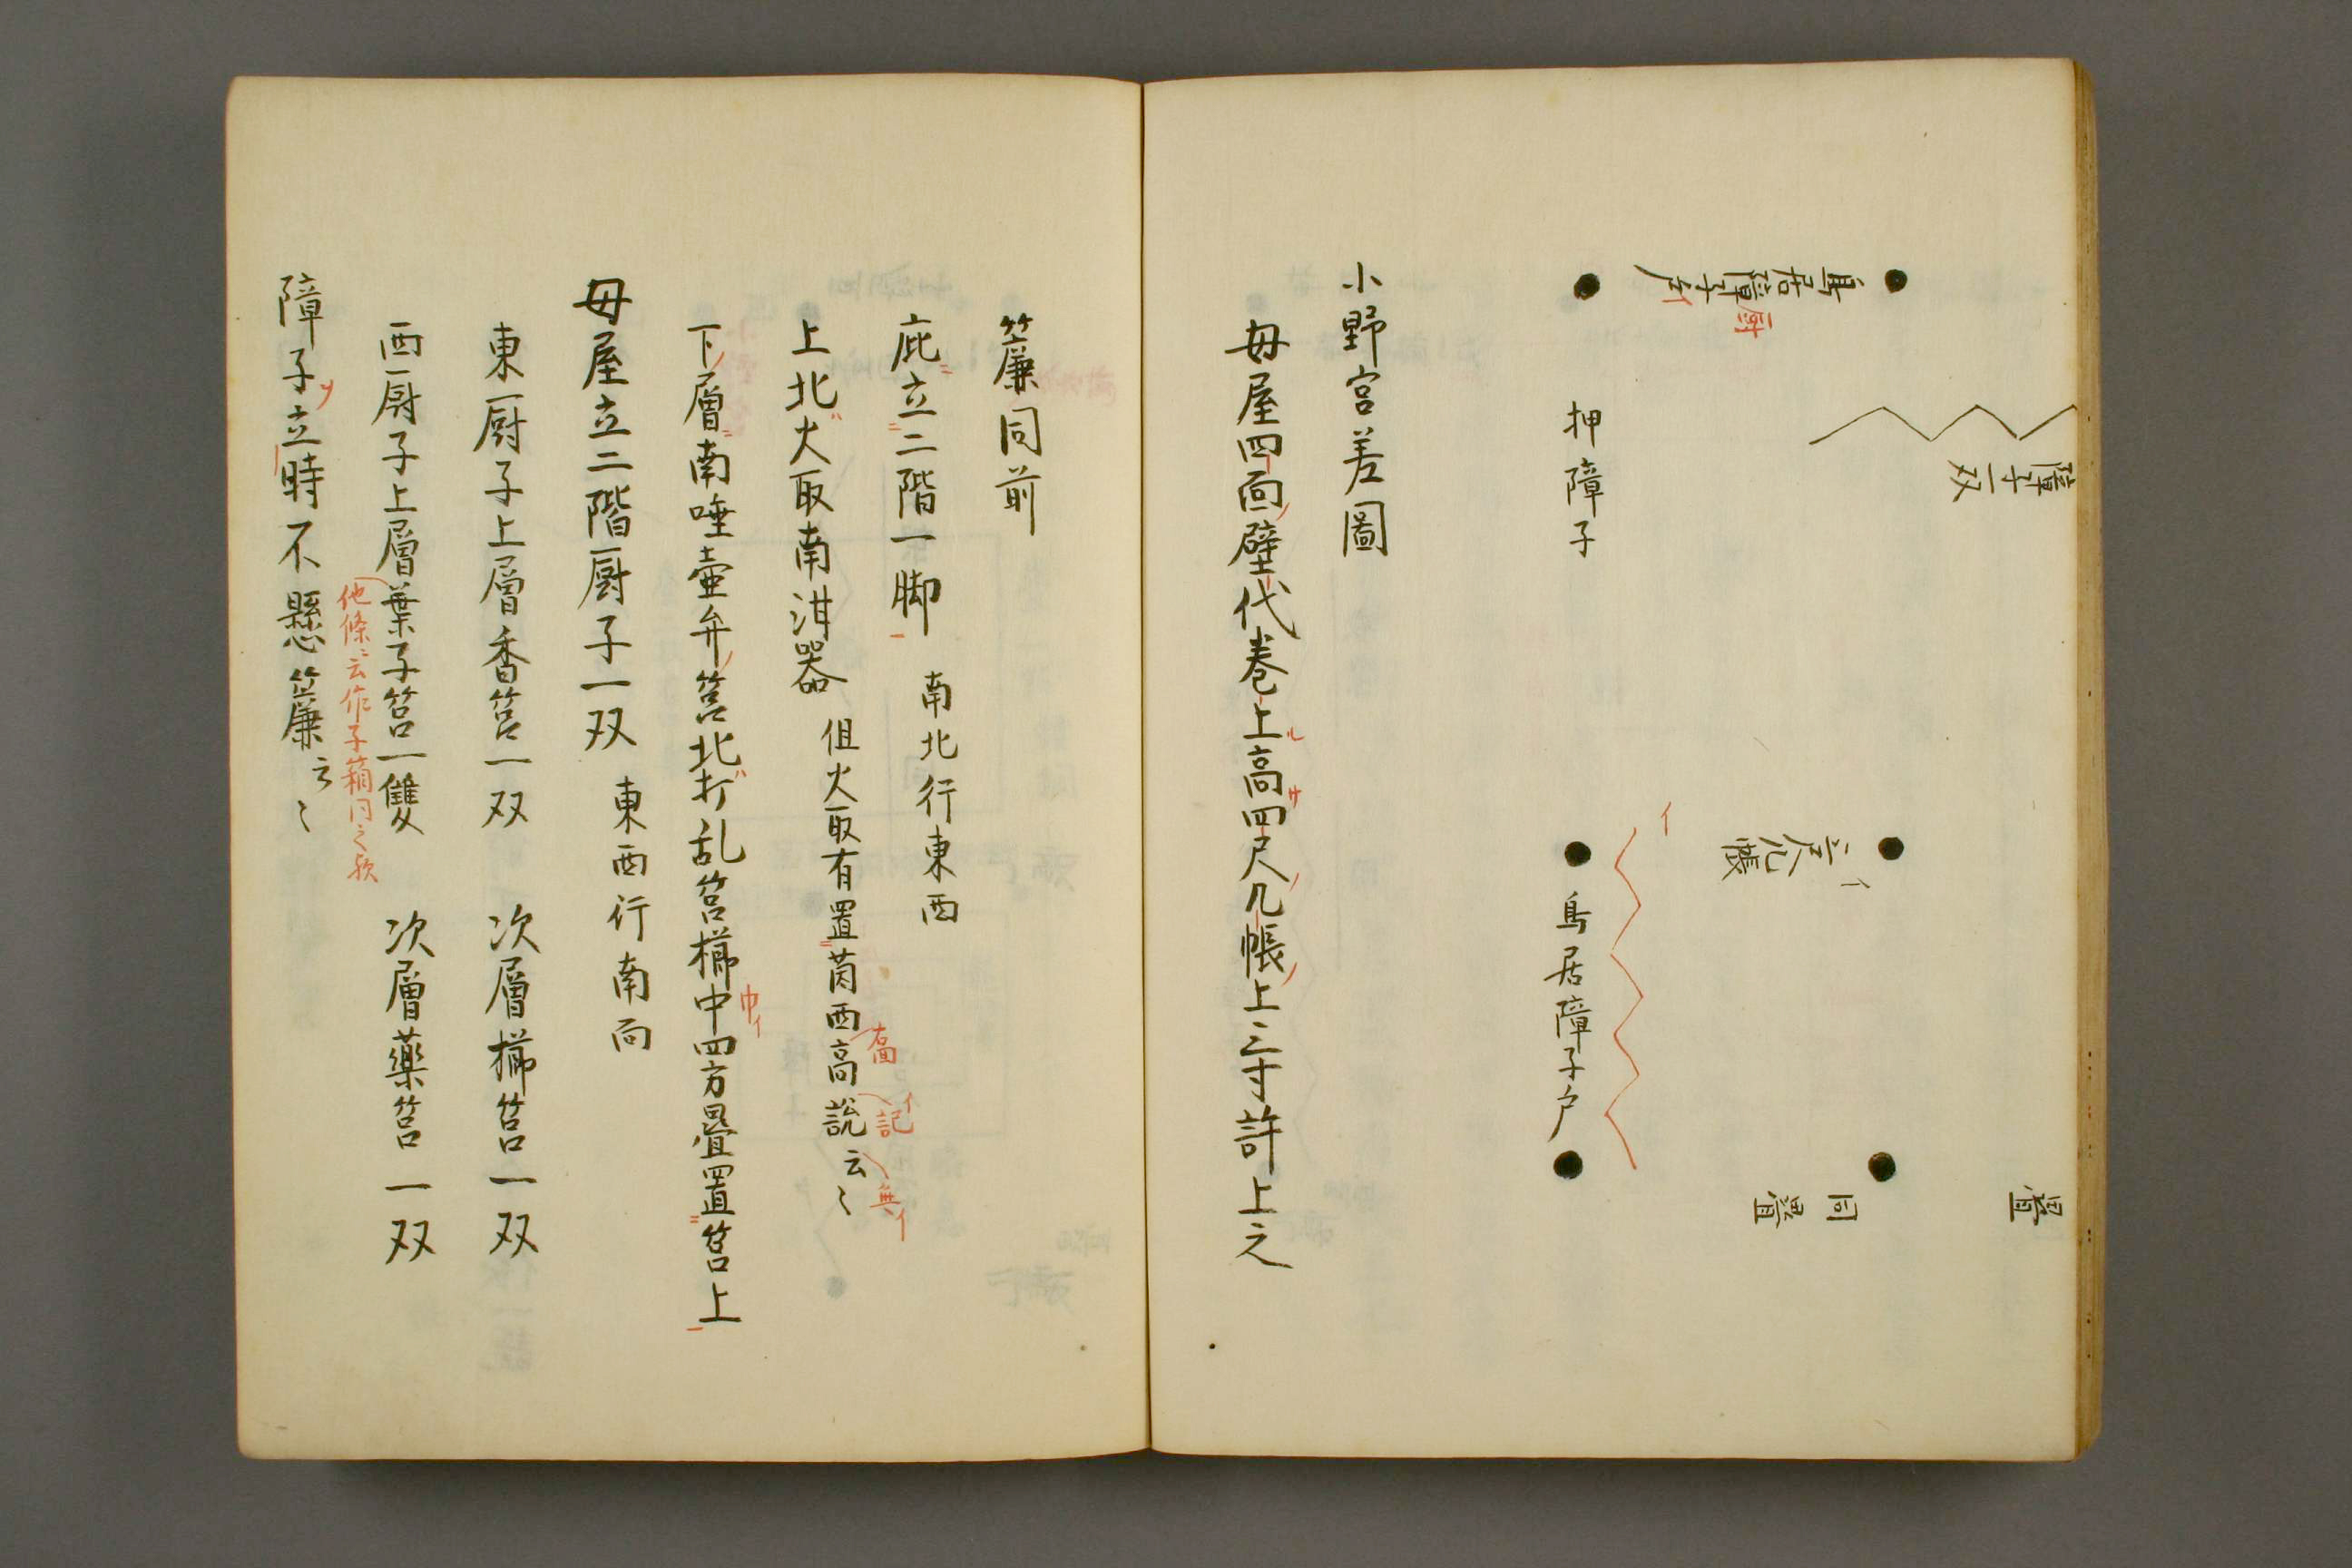 障子一双
畳
鳥居障子
厨
三尺几帳
イ
同
畳
イ
押障子
鳥居障子戸
小野宮差圖
母屋四面壁代巻上高四尺几帳上三寸許上之
簾同前
庇立二階一脚 南北行東西
上北火取南泔器 但火取有置茵西高說云〻
面
記イ
無イ
下層南唾壺弁筥北打乱筥櫛中四方畳置筥上
巾イ
母屋立二階厨子一双 東西行南向
東厨子上層香筥一双 次層櫛筥一双
西厨子上層葉子筥一雙 次層藥筥一双
他條云作子箱同之歟
障子立時不懸簾云〻